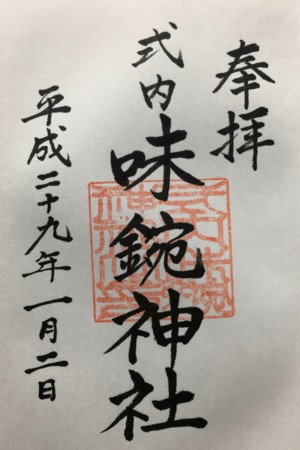 奉拝
式内味鋺神社
平成二十九年一月二日